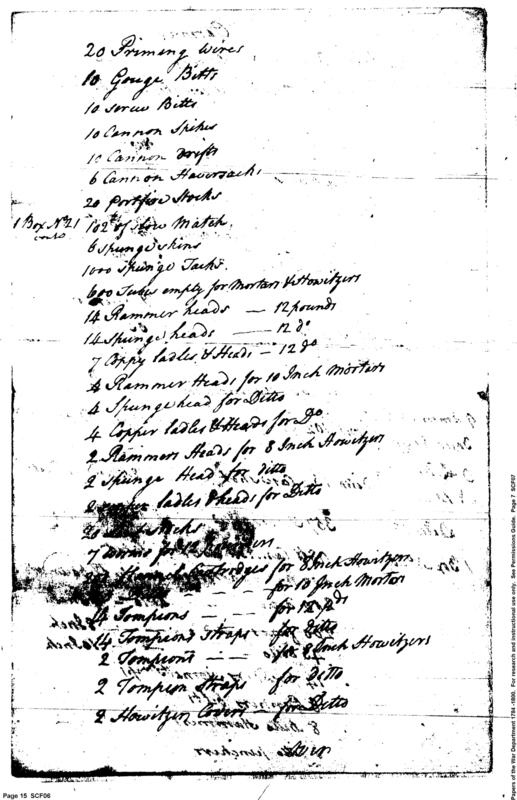 20 Priming Wires
10 Gouge Bitts
10 screw Bitts
10 Cannon Spikes
10 Cannon drifts
6 Cannon Haversacks
20 portfire Stocks
1 Box No 21
conts
102 lb of slow Match
6 spunge skins
1000 Spunge Tacks
600 Tubes empty for Mortars & Howitzers
14 Rammer heads — 12 pounds
14 Spunge heads — 12 do
7 Coppy ladles & Heads — 12 do
4 Rammer Heads for 10 Inch Mortars
4 Spunge head for Ditto
4 Copper ladles & Heads for Do
2 Rammers Heads for 8 Inch Howitzers
2 Spunge Head for ditto
2 ladles & heads for Ditto
20 Stocks
7 Worms for 12
Flannel Cartridges for 8 Inch Howitzers
for 10 Inch Mortars
14 Tompions — — for 12 pdrs
14 Tompions Straps for ditto
2 Tompions — — for 8 Inch Howitzers
2 Tompion Straps for ditto
2 Howitzer Covers for Ditto
Page 15 SCF06
Papers of the War Department 1784-1800. For research and instructional use only. See Permissions Guide. Page 7 SCF07